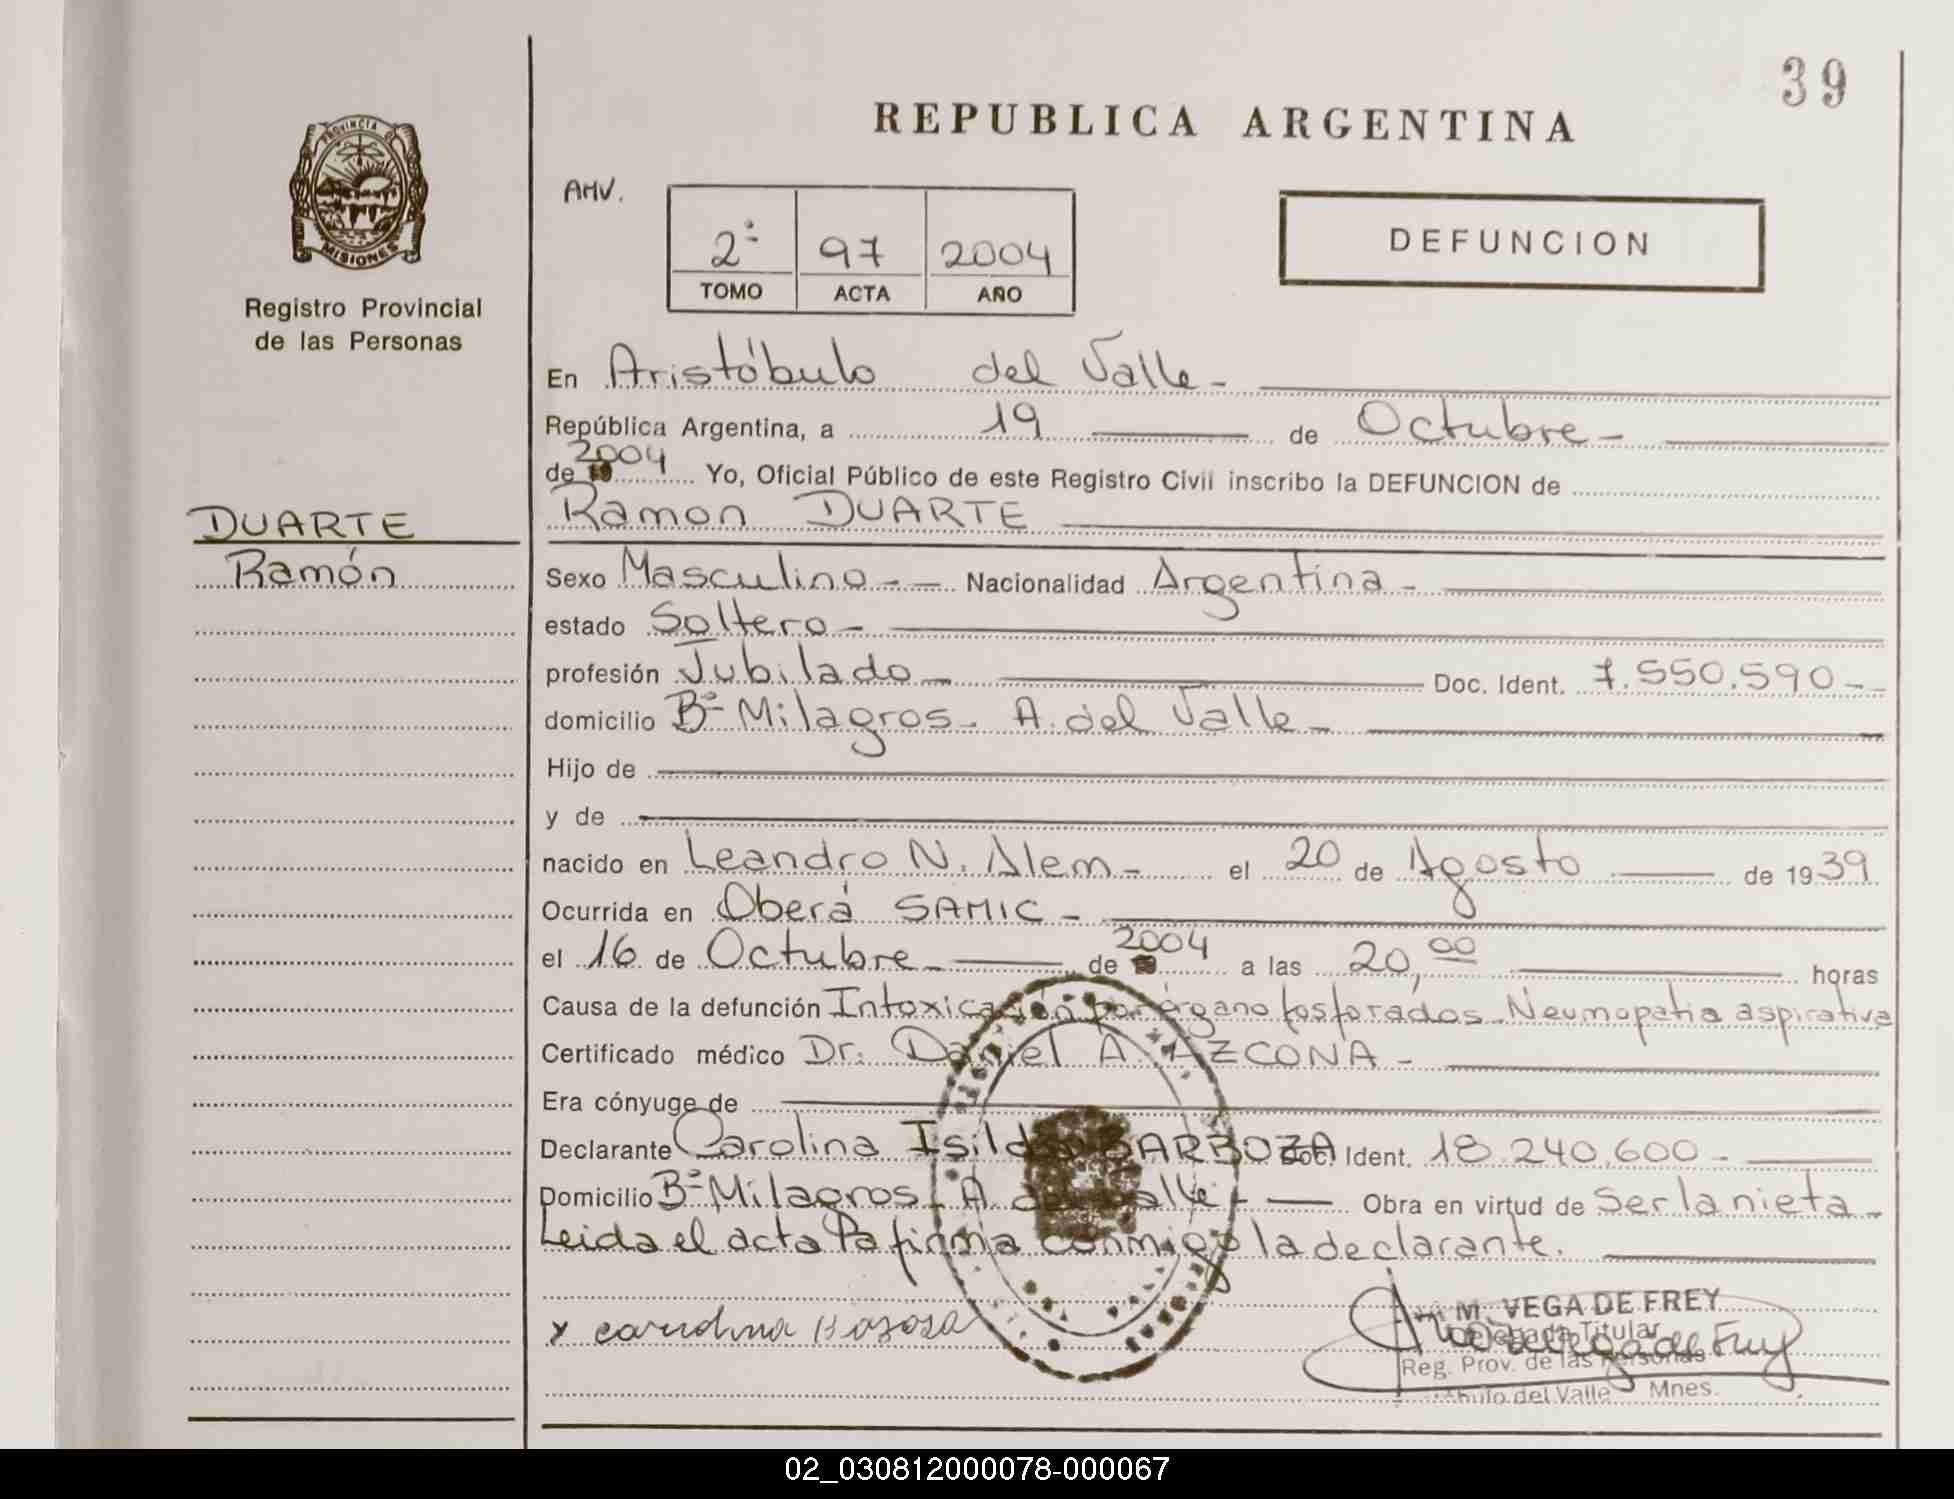 39
REPUBLICA ARGENTINA
PROVINCIA DE
MISIONES
Registro Provincial
de las Personas
AHV.
2º 97 2004
TOMO ACTA AÑO
DEFUNCION
En Aristóbulo del Valle -
República Argentina, a 19 de Octubre -
de 2004 Yo, Oficial Público de este Registro Civil inscribo la DEFUNCION de
DUARTE
Ramón
Ramon DUARTE
Sexo Masculino - Nacionalidad Argentina -
estado Soltero -
profesión Jubilado - Doc. Ident. 7.550.590 -
domicilio Bº Milagros - A. del Valle -
Hijo de
y de
nacido en Leandro N. Alem - el 20 de Agosto de 1939
Ocurrida en Oberá SAMIC -
el 16 de Octubre - de 2004 a las 20,00 horas
Causa de la defunción Intoxicación por órgano fosforados - Neumopatia aspirativa
Certificado médico Dr. Daniel A. AZCONA -
Era cónyuge de
Declarante Carolina Isilda BARBOZA Doc. Ident. 18.240.600 -
Domicilio Bº Milagros A. del Valle - Obra en virtud de Ser la nieta -
Leida el acta la firma conmigo la declarante.
x
M. VEGA DE FREY
Delegada Titular
Reg. Prov. de las Personas
del Valle Mnes.
02_030812000078-000067